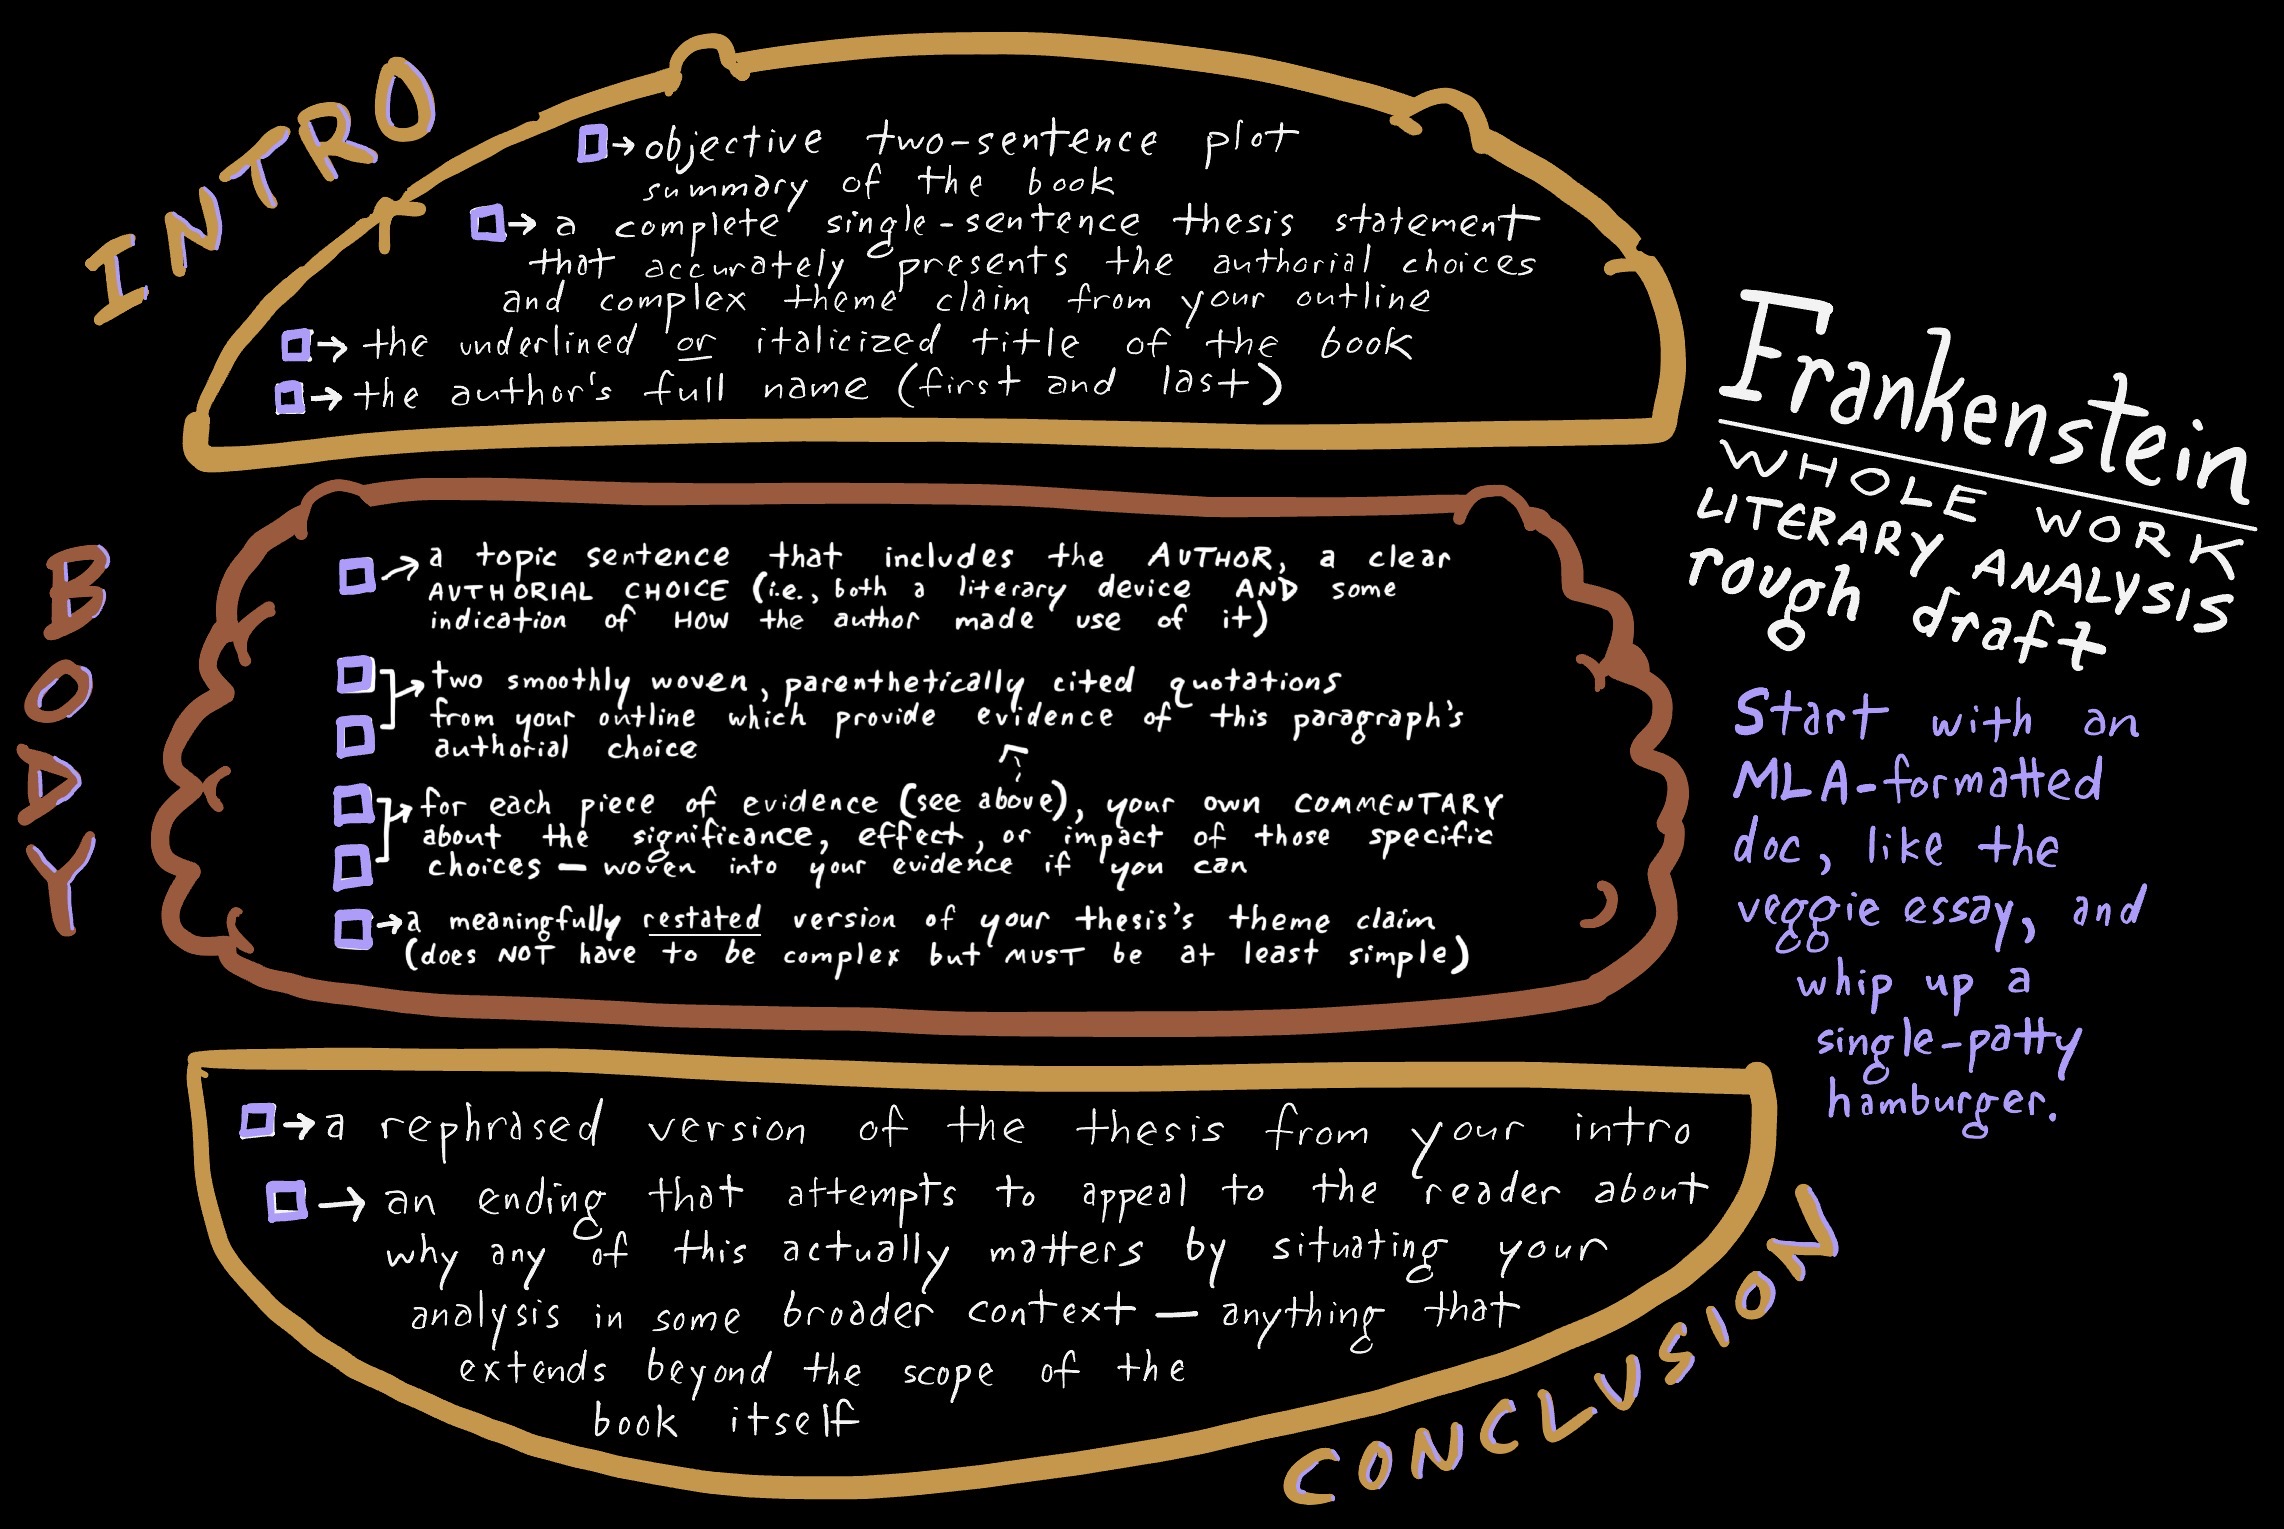 INTRO
→ objective two-sentence plot
summary of the book
→ a complete single-sentence thesis statement
that accurately presents the authorial choices
and complex theme claim from your outline
→ the underlined or italicized title of the book
→ the author's full name (first and last)
BODY
→ a topic sentence that includes the AUTHOR, a clear
AUTHORIAL CHOICE (i.e., both a literary device AND some
indication of HOW the author made use of it)
→ two smoothly woven, parenthetically cited quotations
from your outline which provide evidence of this paragraph's
authorial choice
→ for each piece of evidence (see above), your own COMMENTARY
about the significance, effect, or impact of those specific
choices — woven into your evidence if you can
→ a meaningfully restated version of your thesis's theme claim
(does NOT have to be complex but MUST be at least simple)
→ a rephrased version of the thesis from your intro
→ an ending that attempts to appeal to the reader about
why any of this actually matters by situating your
analysis in some broader context — anything that
extends beyond the scope of the
book itself
CONCLUSION
Frankenstein
WHOLE WORK
LITERARY ANALYSIS
rough draft
Start with an
MLA-formatted
doc, like the
veggie essay, and
whip up a
single-patty
hamburger.